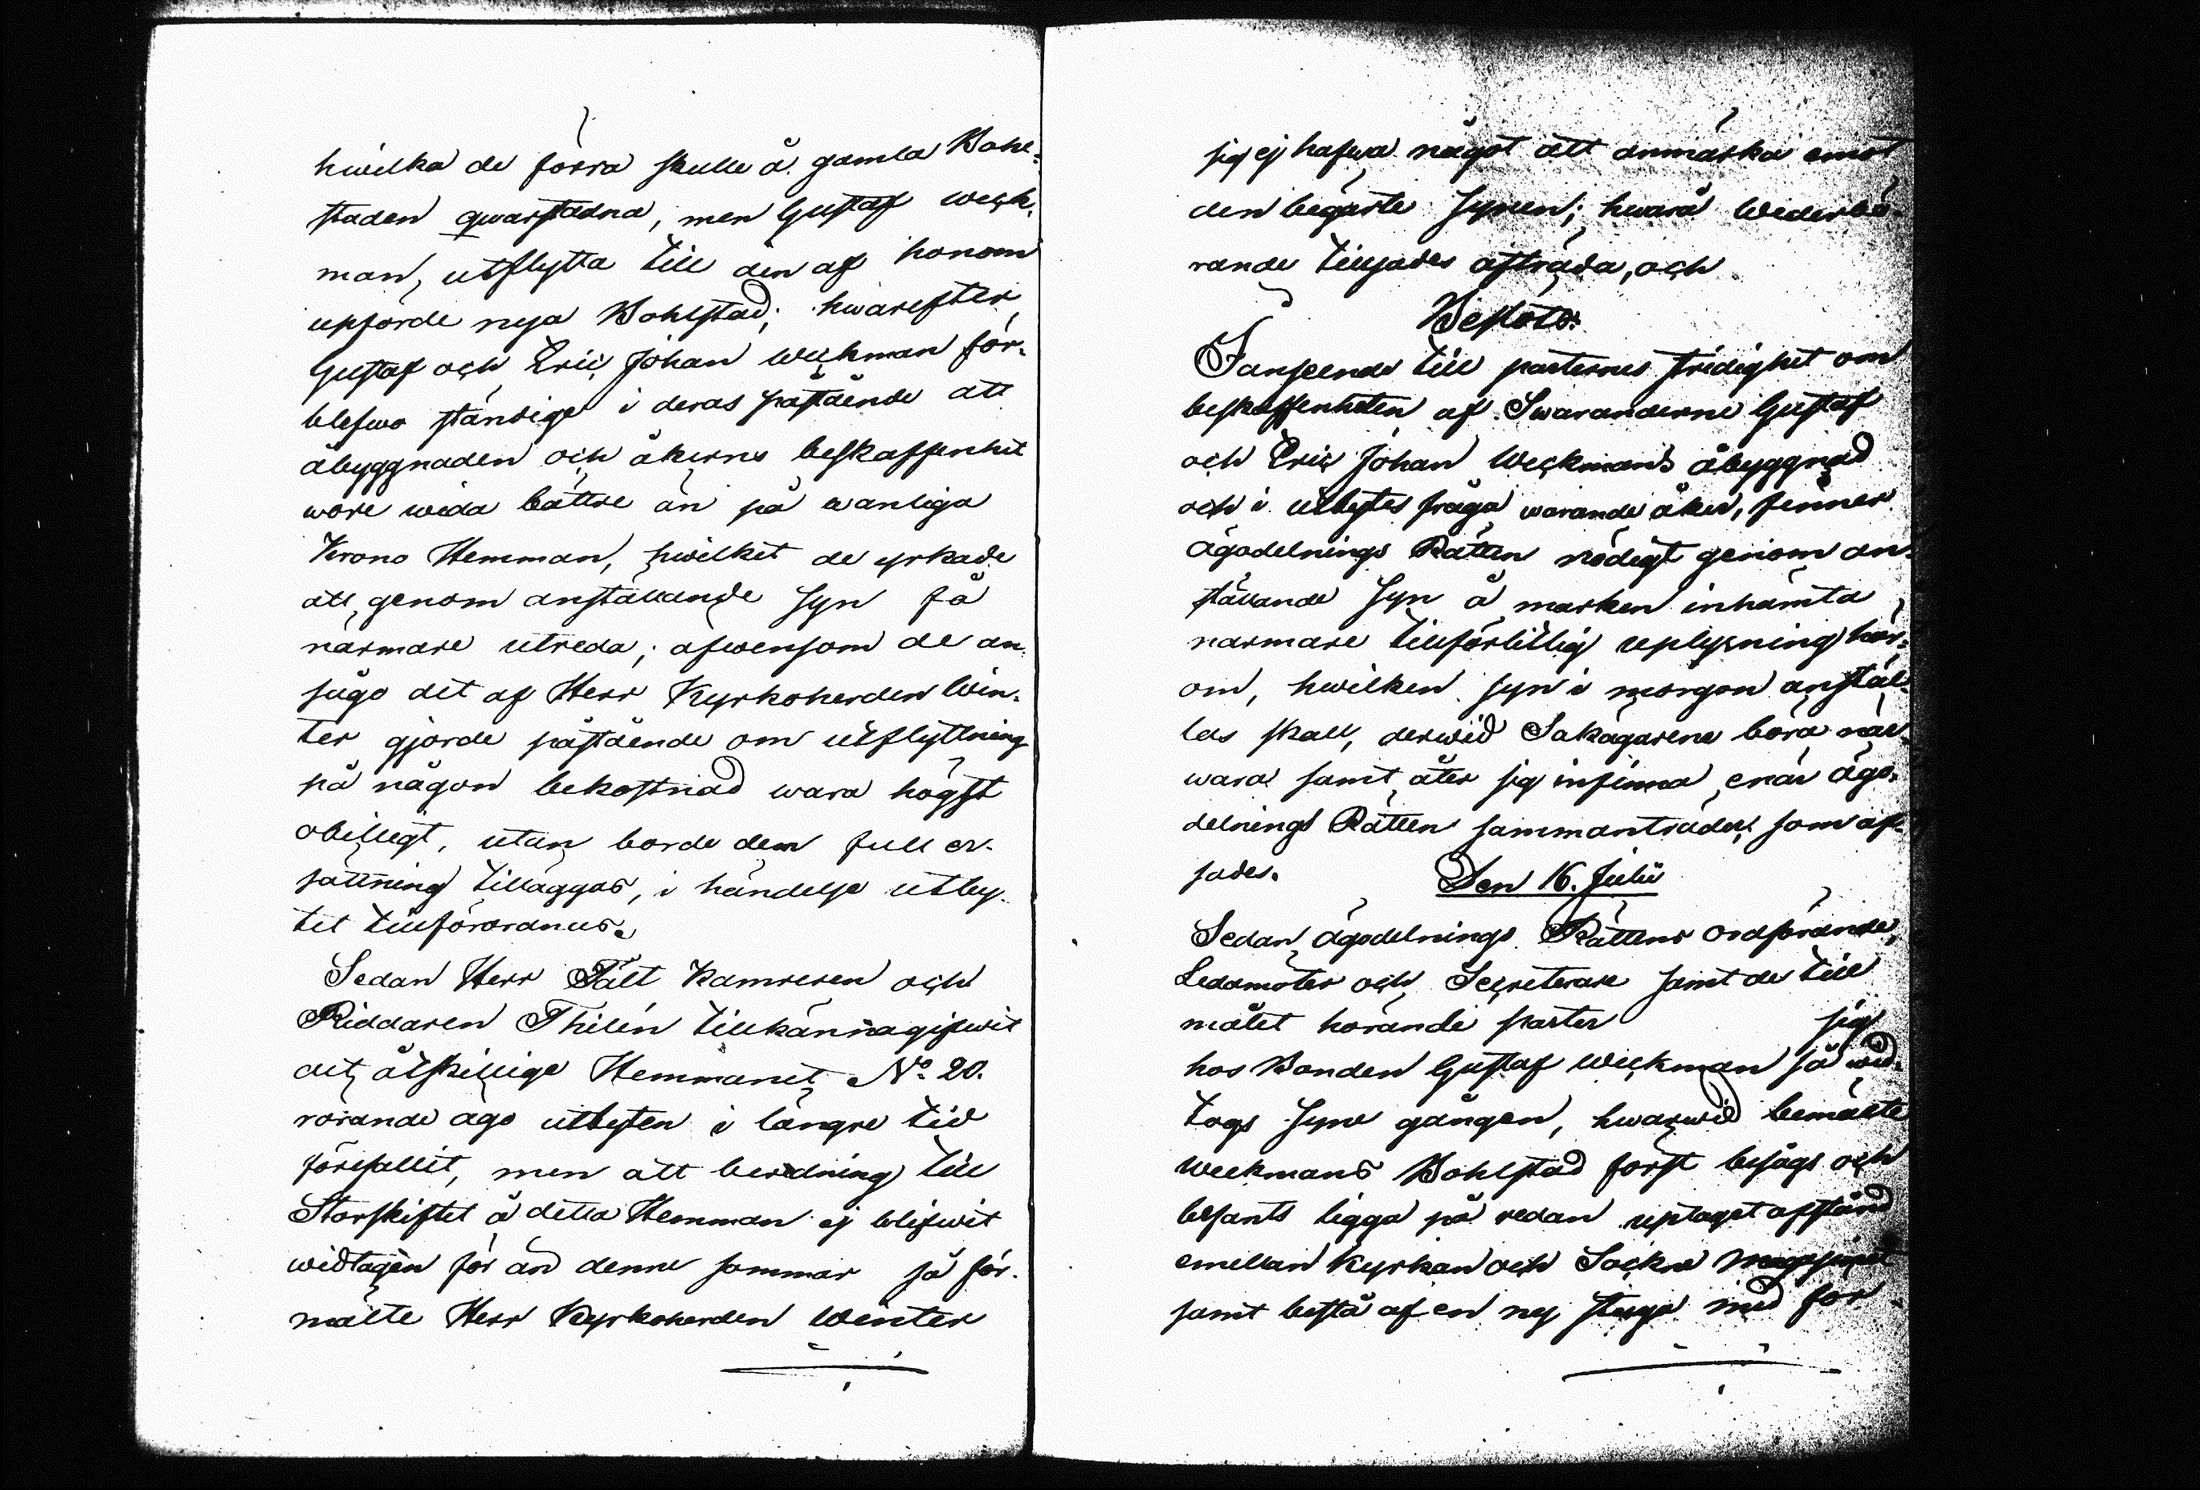 hwilka de förra skulle å gamla Bohl-
staden qwarstadna, men Gustaf Weck-
man, utflytta till den af honom
upförde nya Bohlstad; hwarefter
Gustaf och Eric Johan Weckman för-
blefwo ständige i deras påstående att
åbyggnaden och åkerns beskaffenhet
wore wida bättre än på wanliga
Krono Hemman, hwilket de yrkade
att genom anställande Syn få
närmare utreda; äfwensom de an-
sågo det af Herr Kyrkoherden Win-
ter gjorde påstående om utflyttning
på någon bekostnad wara högst
obilligt, utan borde dem full er-
sättning tilläggas, i händelse utby-
tet tillförordnas.
Sedan Herr Fält Kamreren och
Riddaren Thilén tillkännagifwit
att åtskillige Hemmanet No 20.
rörande ägo utbyten i längre tid
förefallit, men att beredning till
Storskiftet å detta Hemman ej blifwit
widtagen för än denne sommar så för-
mälte Herr Kyrkoherden Winter
sig ej hafwa något att anmärka emot
den begärte Synen; hwarå Wederbö-
rande tillsades afträda, och
Beslöts:
I anseende till parternes stridighet om
beskaffenheten af Swaranderne Gustaf
och Eric Johan Weckmans åbyggnad
och i utbytes fråga warande åker, finner
Ägodelnings Rätten nödigt genom an-
ställande Syn å marken inhämta
närmare tillförlitlig uplysning här-
om, hwilken syn i morgon anstäl-
las skall, derwid Sakägarene böra när-
wara samt åter sig infinna, enär Ägo-
delnings Rätten sammanträder, som af-
sades.
Den 16. Julii
Sedan Ägodelnings Rättens Ordförande,
Ledamöter och Secreterare samt de till
målet hörande parter sig
hos Bonden Gustaf Weckman så wid-
togs Syne gången, hwarwid bemälte
Weckmans Bohlstad först besågs och
befants ligga på redan uptaget afstånd
emellan Kyrkan och Sockne Magasinet
samt bestå af en ny stuga med för-